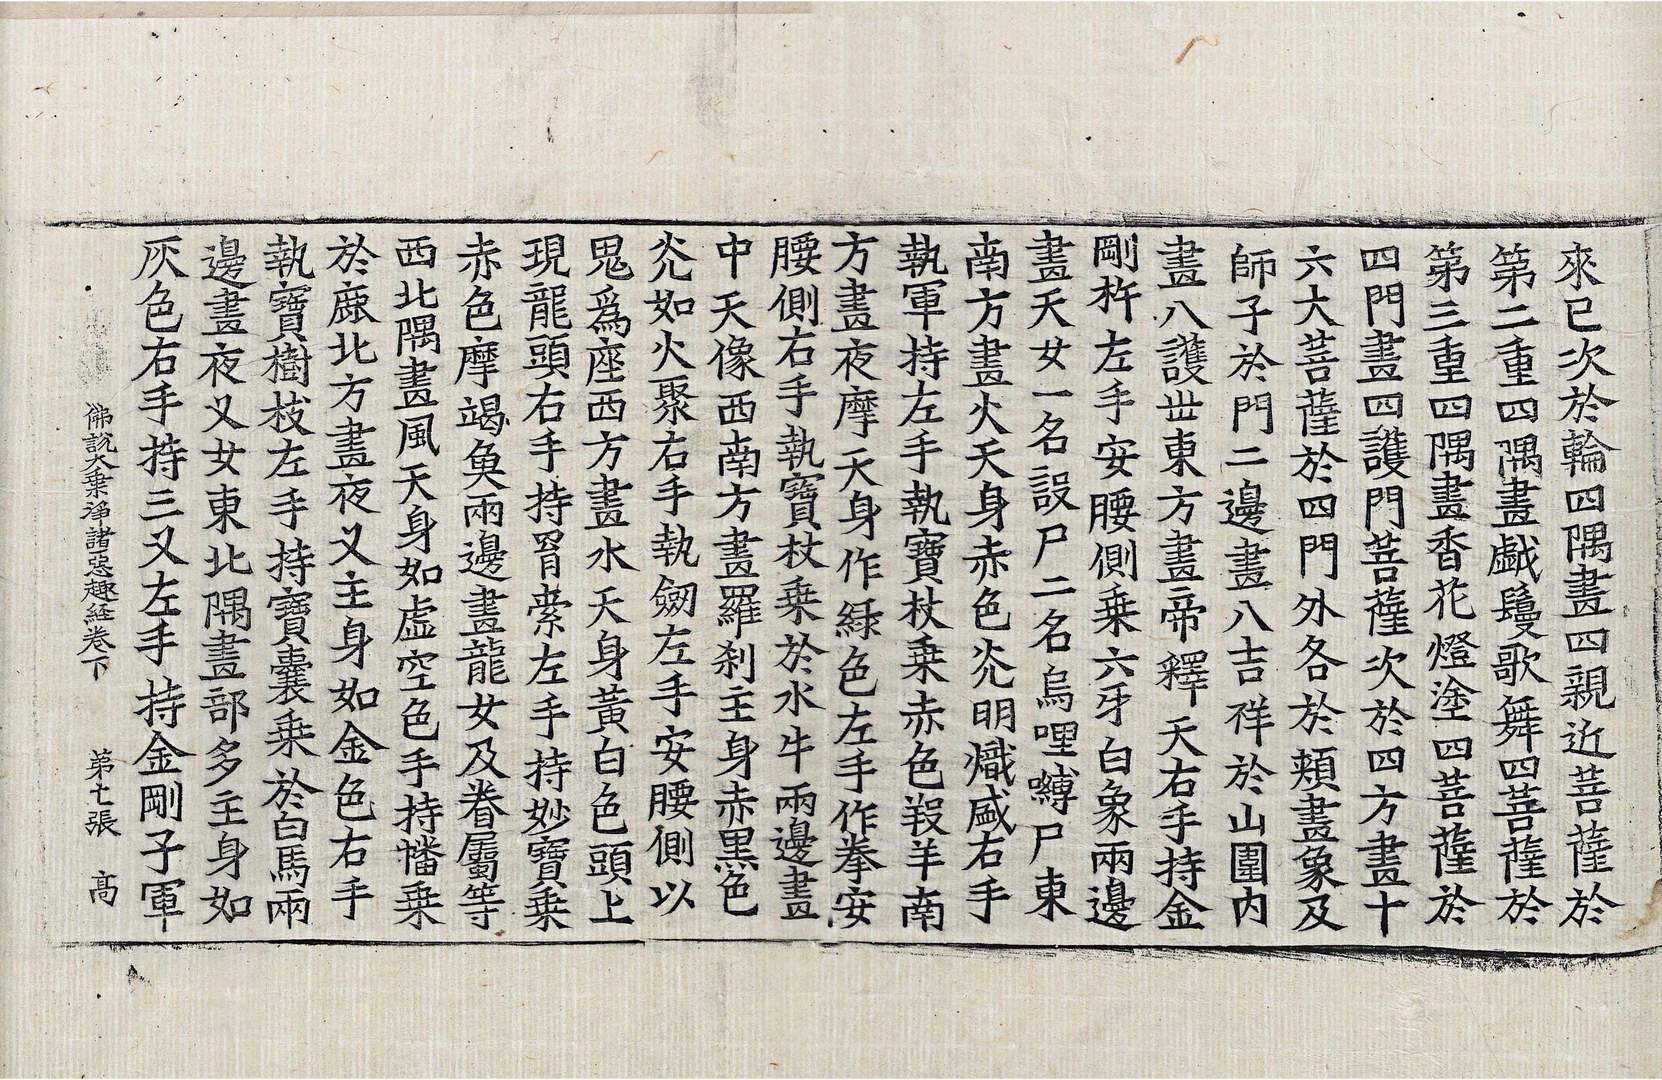 來已次於輪四隅畫四親近菩薩於
第二重四隅畫戯鬘歌舞四菩薩於
第三重四隅畫香花燈塗四菩薩於
四門畫四護門菩薩次於四方畫十
六大菩薩於四門外各於頬畫象及
師子於門二邊畫八吉祥於山圍内
畫八護丗東方畫帝釋天右手持金
剛杵左手安腰側乗六牙白象兩邊
畫天女一名設尸二名烏哩嚩尸東
南方畫火天身赤色炎明熾盛右手
執軍持左手執寶杖乗赤色羖羊南
方畫夜摩天身作緑色左手作拳安
腰側右手執寶杖乗於水牛兩邊畫
中天像西南方畫羅刹主身赤黒色
炎如火聚右手執劒左手安腰側以
鬼爲座西方畫水天身黃白色頭上
現龍頭右手持罥索左手持妙寶乗
赤色摩竭魚兩邊畫龍女及眷屬等
西北隅畫風天身如虛空色手持幡乗
於鹿北方畫夜叉主身如金色右手
執寶樹枝左手持寶囊乗於白馬兩
邊畫夜叉女東北隅畫部多主身如
灰色右手持三叉左手持金剛子軍
佛說大乗淨諸惡趣経卷下 第七張 髙